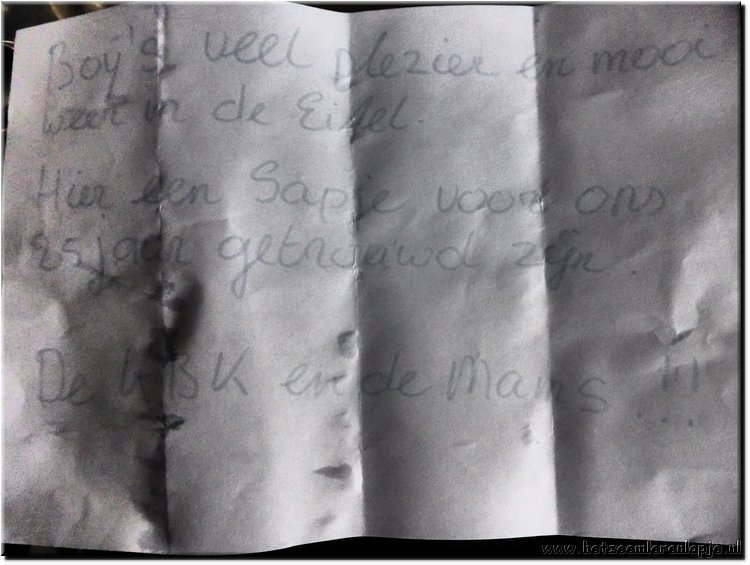 Boy's veel plezier en mooi
weer in de Eifel.
Hier een Sapje voor ons
25 jaar getrouwd zijn.
De KBK en de Mams !!!
www.hetzeemlerenlapje.nl